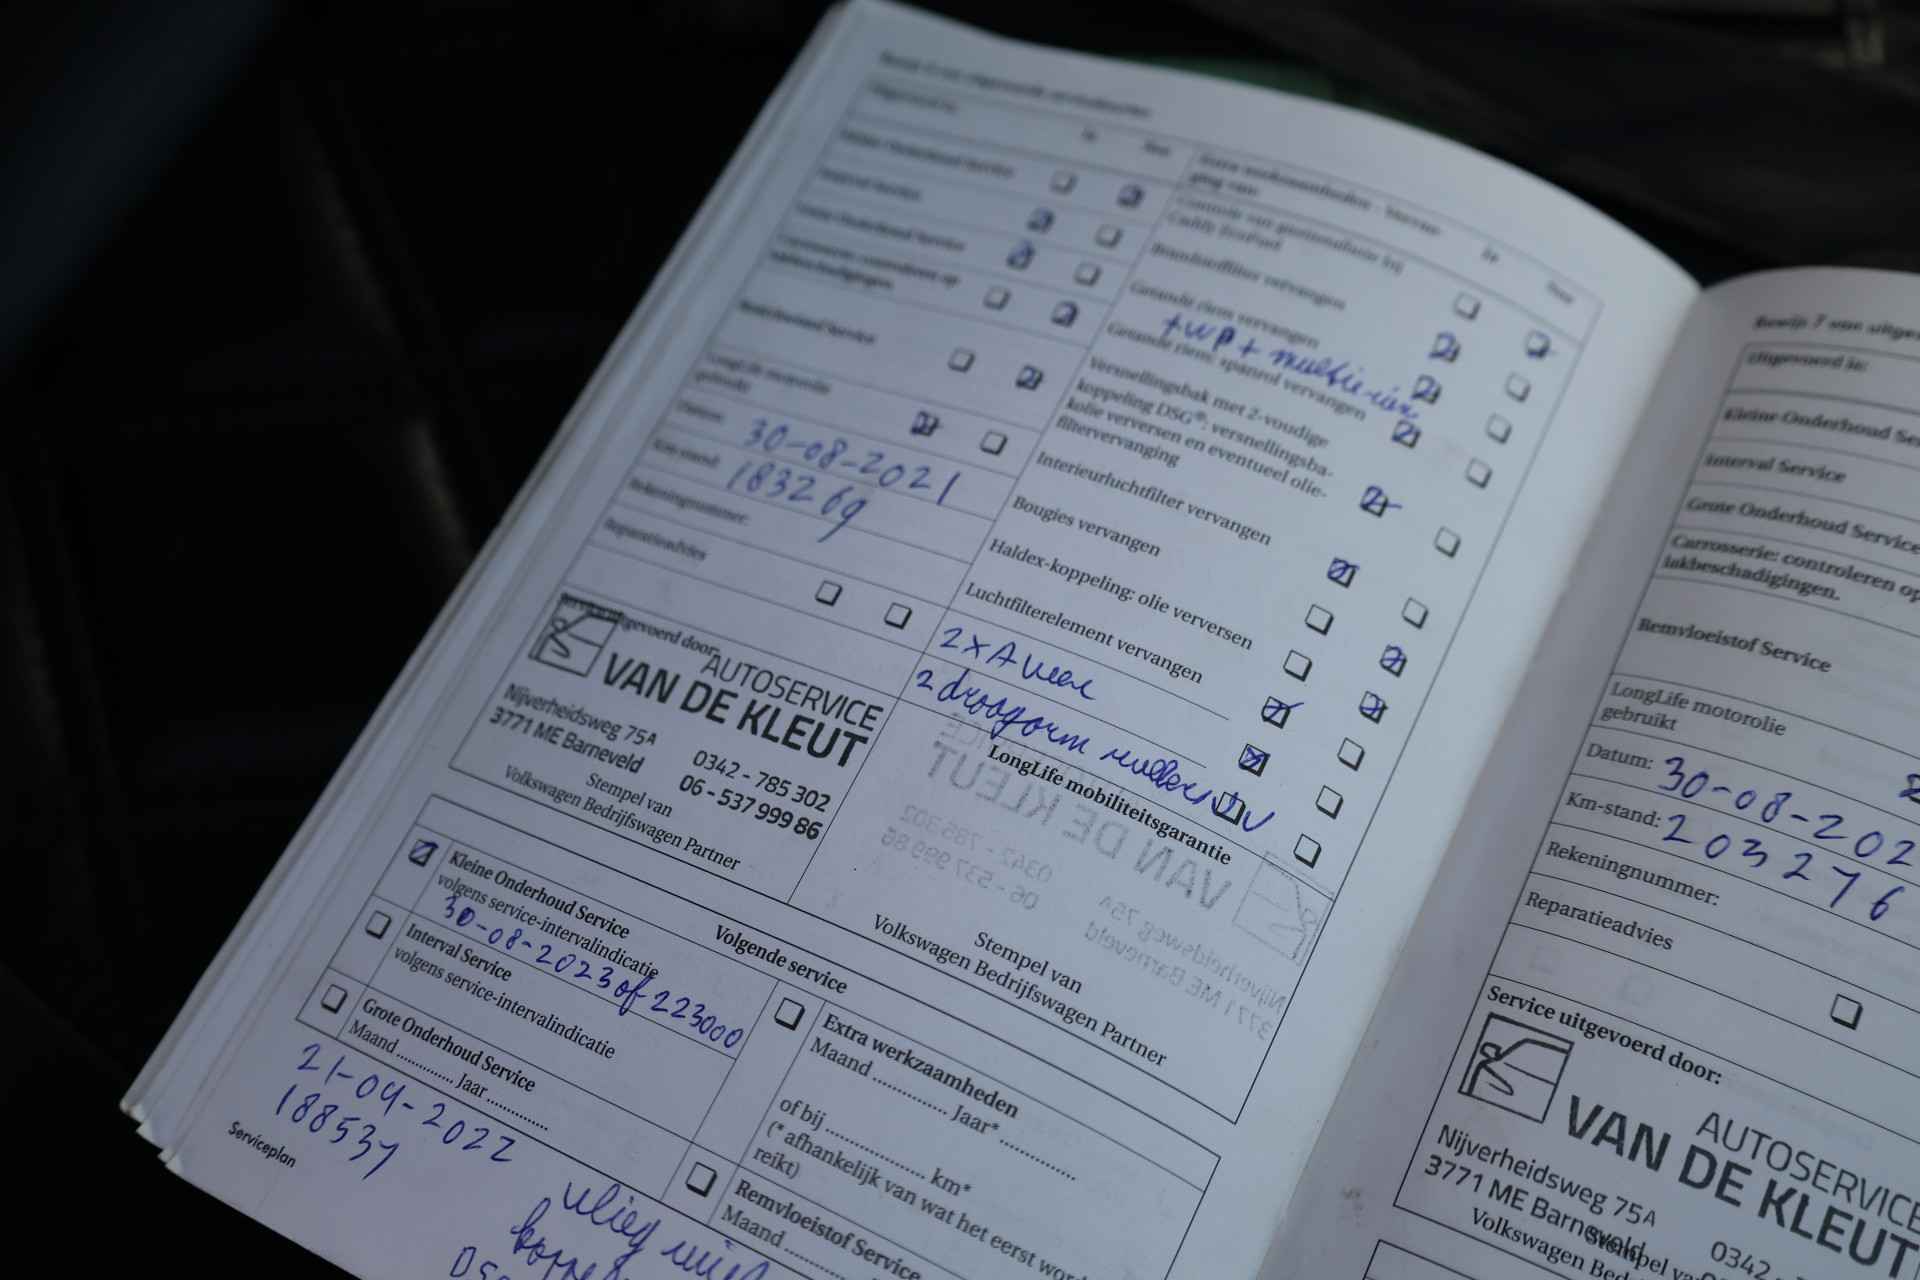 Ja Nee
Kleine Onderhoud Service
Interval Service
Grote Onderhoud Service
Carrosserie: controleren op
lakbeschadigingen.
Remvloeistof Service
LongLife motorolie
gebruikt
Datum: 30-08-2021
Km-stand: 183269
Rekeningnummer:
Reparatieadvies
Service uitgevoerd door:
AUTOSERVICE
VAN DE KLEUT
Nijverheidsweg 75A
3771 ME Barneveld
0342 - 785 302
06 - 537 999 86
Stempel van
Volkswagen Bedrijfswagen Partner
Ja Nee
Brandstoffilter vervangen
Getande riem vervangen
+ WP + multie-
Getande riem: spanrol vervangen
Versnellingsbak met 2-voudige
koppeling DSG®: versnellingsba-
kolie verversen en eventueel olie-
filtervervanging
Interieurluchtfilter vervangen
Bougies vervangen
Haldex-koppeling: olie verversen
Luchtfilterelement vervangen
2 x A veer
2 draagarm
LongLife mobiliteitsgarantie
Stempel van
Volkswagen Bedrijfswagen Partner
Volgende service
Kleine Onderhoud Service
volgens service-intervalindicatie
30-08-2023 of 223000
Interval Service
volgens service-intervalindicatie
Grote Onderhoud Service
Maand ............. Jaar .............
21-04-2022
188537
Extra werkzaamheden
Maand ............... Jaar* ...............
of bij .................... km*
(* afhankelijk van wat het eerst
reikt)
Remvloeistof Service
Maand
Serviceplan
vlieg
Bewijs 7 van
Uitgevoerd in:
Kleine Onderhoud
Interval Service
Grote Onderhoud Service
Carrosserie: controleren op
lakbeschadigingen.
Remvloeistof Service
LongLife motorolie
gebruikt
Datum: 30-08-202
Km-stand: 203276
Rekeningnummer:
Reparatieadvies
Service uitgevoerd door:
AUTOSERVICE
VAN DE KLEUT
Nijverheidsweg 75A
3771 ME Barneveld
0342 -
Stempel
Volkswagen